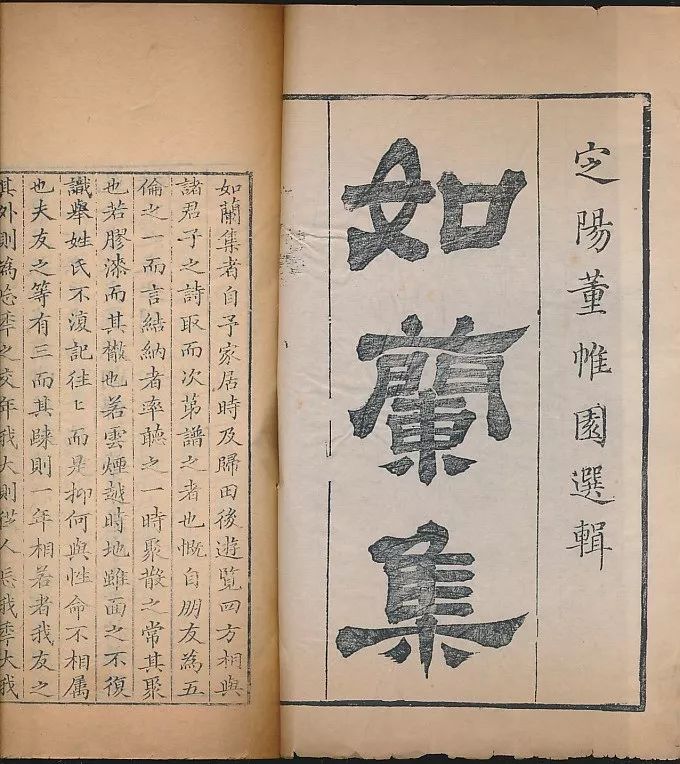 定陽董帷園選輯
如蘭集
如蘭集者自予家居時及歸田後遊覧四方相與
諸君子之詩取而次第譜之者也慨自朋友為五
倫之一而言結納者率聽之一時聚散之常其聚
也若膠漆而其檄也若雲煙越時地雖面之不復
識舉姓氏不復記往〻而是抑何與性命不相属
也夫友之等有三而其踈則一年相若者我友之
其外則為忘年之交年我大則從人忘我年大我